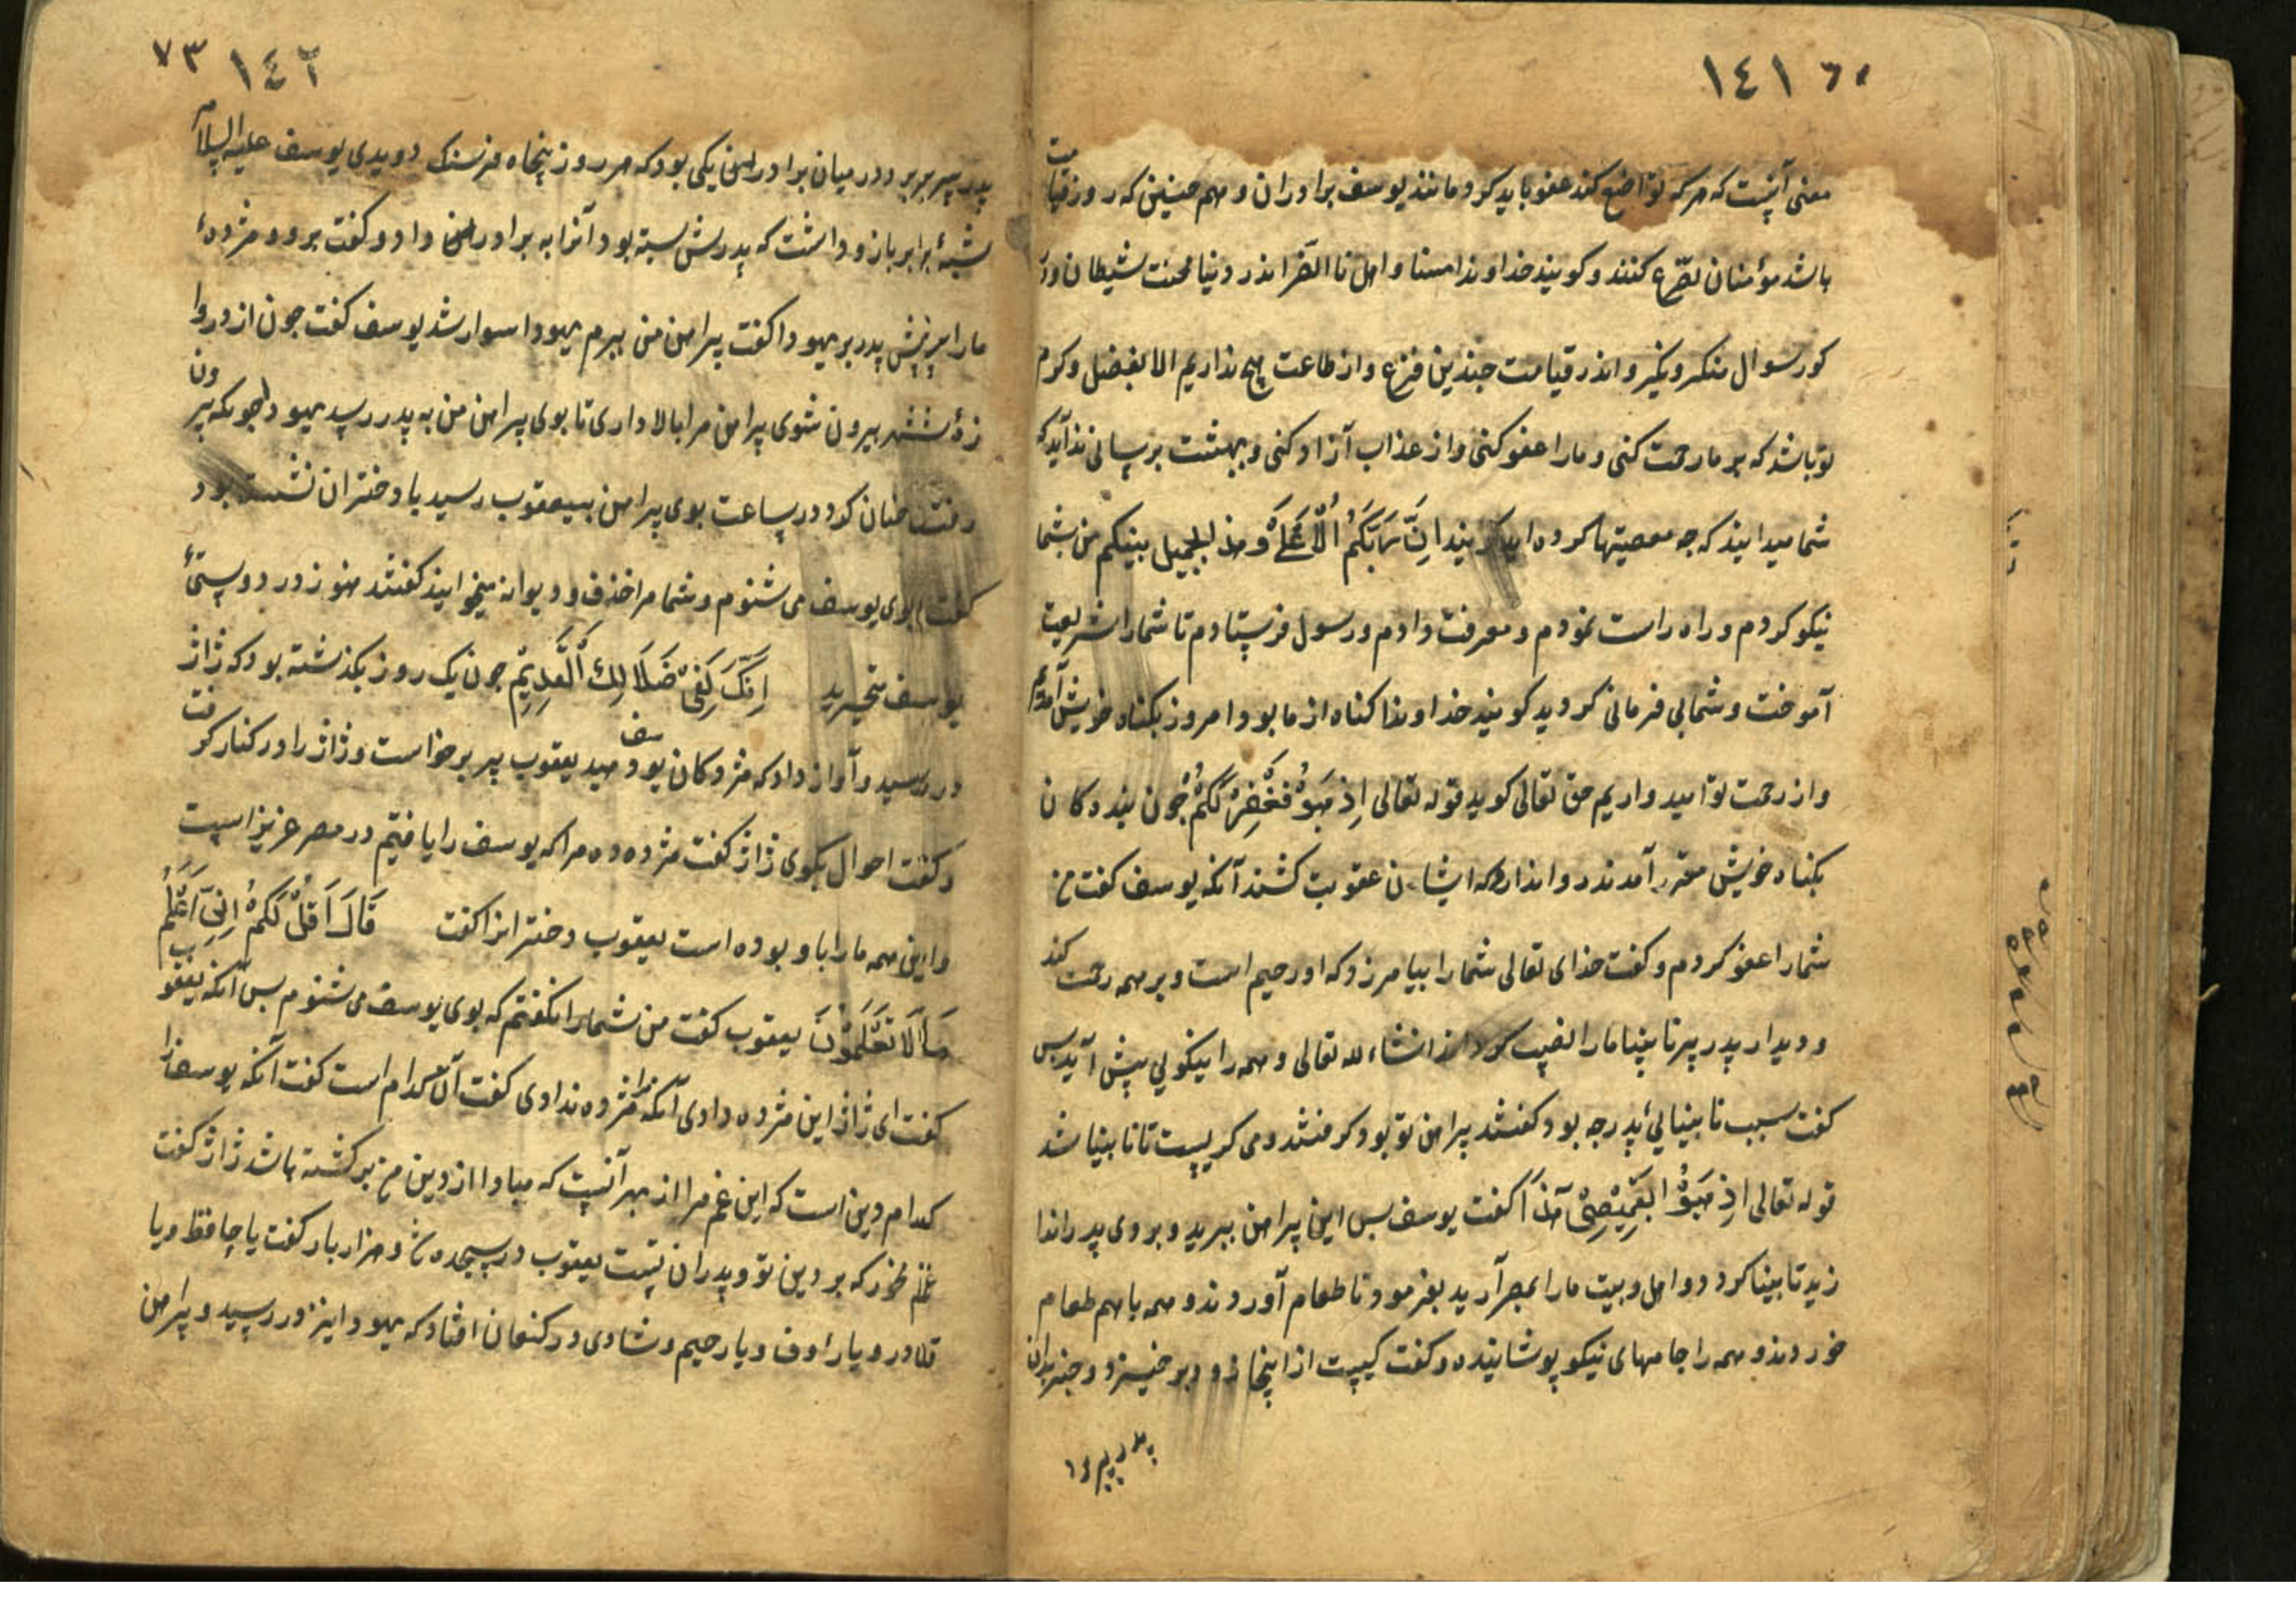 ١٤١
معنی آنست که هر که تواضع کند عفو باید کرد و مانند یوسف برادران و هم چنین که روز قیامت
باشد مؤمنان تضرع کنند و کویند خداوندا مسنا و اهلنا الضر اندر دنیا محنت شیطان و در
کور سوال منکر و نکیر و اندر قیامت چندین فزع و از طاعت هیچ نداریم الا بفضل و کرم
تو باشد که بر ما رحمت کنی و ما را عفو کنی و از عذاب آزاد کنی و ببهشت برسانی ندا آید که
شما میدانید که چه معصیتها کرده اید کویند اِنَّ رَبَّکُمُ الْاَعْلَی من بشما
نیکو کردم و راه راست نمودم و معرفت دادم و رسول فرستادم تا شما را شریعت
آموخت و شما بی فرمانی کردید کویند خداوندا کناه از ما بود امروز بکناه خویش آمدیم
و از رحمت تو امید واریم حق تعالی کوید قوله تعالی اِذْهَبُوْ فَغَفِرْ لَکُمْ جون بنده کان
بکناه خویش مقر آمدند روا ندارد که ایشان عقوبت کشند آنکه یوسف کفت من
شما را عفو کردم و کفت خدای تعالی شما را بیامرزد که او رحیم است و بر همه رحمت کند
و دیدار پدر پیر نابینا ما را نصیب کرداند انشاء لله تعالی و همه را نیکویی پیش آید بس
کفت سبب نابینایی پدر چه بود کفتند پراهن تو بود کرفتند و می کریست تا نابینا شد
قوله تعالی اِذْهَبُوْا بِقَمِیْصِیْ هٰذَا کفت یوسف بس این پراهن ببرید و بروی پدر اندا
زید تا بینا کردد و اهل و بیت ما را بمصر آرید بفرمود تا طعام آوردند و همه با هم طعام
خوردند و همه را جامهای نیکو پوشانیده و کفت کیست از اینجا زود بر خیزد و خبر بران
پدر پیر
٧٣ ١٤٢
پدر پیر برد و در میان برادران یکی بود که هر روز پنجاه فرسنک دویدی یوسف علیه السلام
برابر بازو داشت که پدرش بسته بود آنرا به برادران داد و کفت برو و مژدهٔ
ما را پیش پدر بر یهودا کفت پیراهن من ببرم یهودا سوار شد یوسف کفت جون از دروا
زهٔ شهر بیرون شوی پراهن مرا بالا داری تا بوی پراهن من به پدر رسید یهودا چونکه بیرون
رفت چنان کرد در ساعت بوی پراهن بیعقوب رسید با دختران نشسته بود
کفت بوی یوسف می شنوم و شما مرا خذف و دیوانه میخوانید کفتند هنوز در دوستیٔ
یوسف متحیرید اِنَّکَ لَفِیْ ضَلَالِکَ الْقَدِیْمِ جون یک روز بکذشته بود که ژاژ
در رسید و آواز داد که مژدکان یوسف دهید یعقوب پیر برخاست و ژاژ را در کنار کرفت
و کفت احوال بکوی ژاژ کفت مژده ده مرا که یوسف را یافتیم در مصر عزیز است
و این همه ما را با و بوده است یعقوب دختر انرا کفت قَالَ اَقُلْ لَکُمْ اِنِّیْ اَعْلَمُ
مَا لَا تَعْلَمُوْنَ یعقوب کفت من شما را نکفتم که بوی یوسف می شنوم بس آنکه یعقوب
کفت ای ژاژ این مژده دادی آنکه مژده ندادی کفت آن کدام است کفت آنکه یوسف را
کدام دین است که این غم مرا از بهر آنست که مبادا از دین من برکشته باشد ژاژ کفت
غم مخور که بر دین تو و پدران تست یعقوب در سجده شد و هزار بار کفت یا حافظ و یا
قادر و یا رؤف و یا رحیم و شادی در کنعان افتاد که یهودا نیز در رسید و پراهن